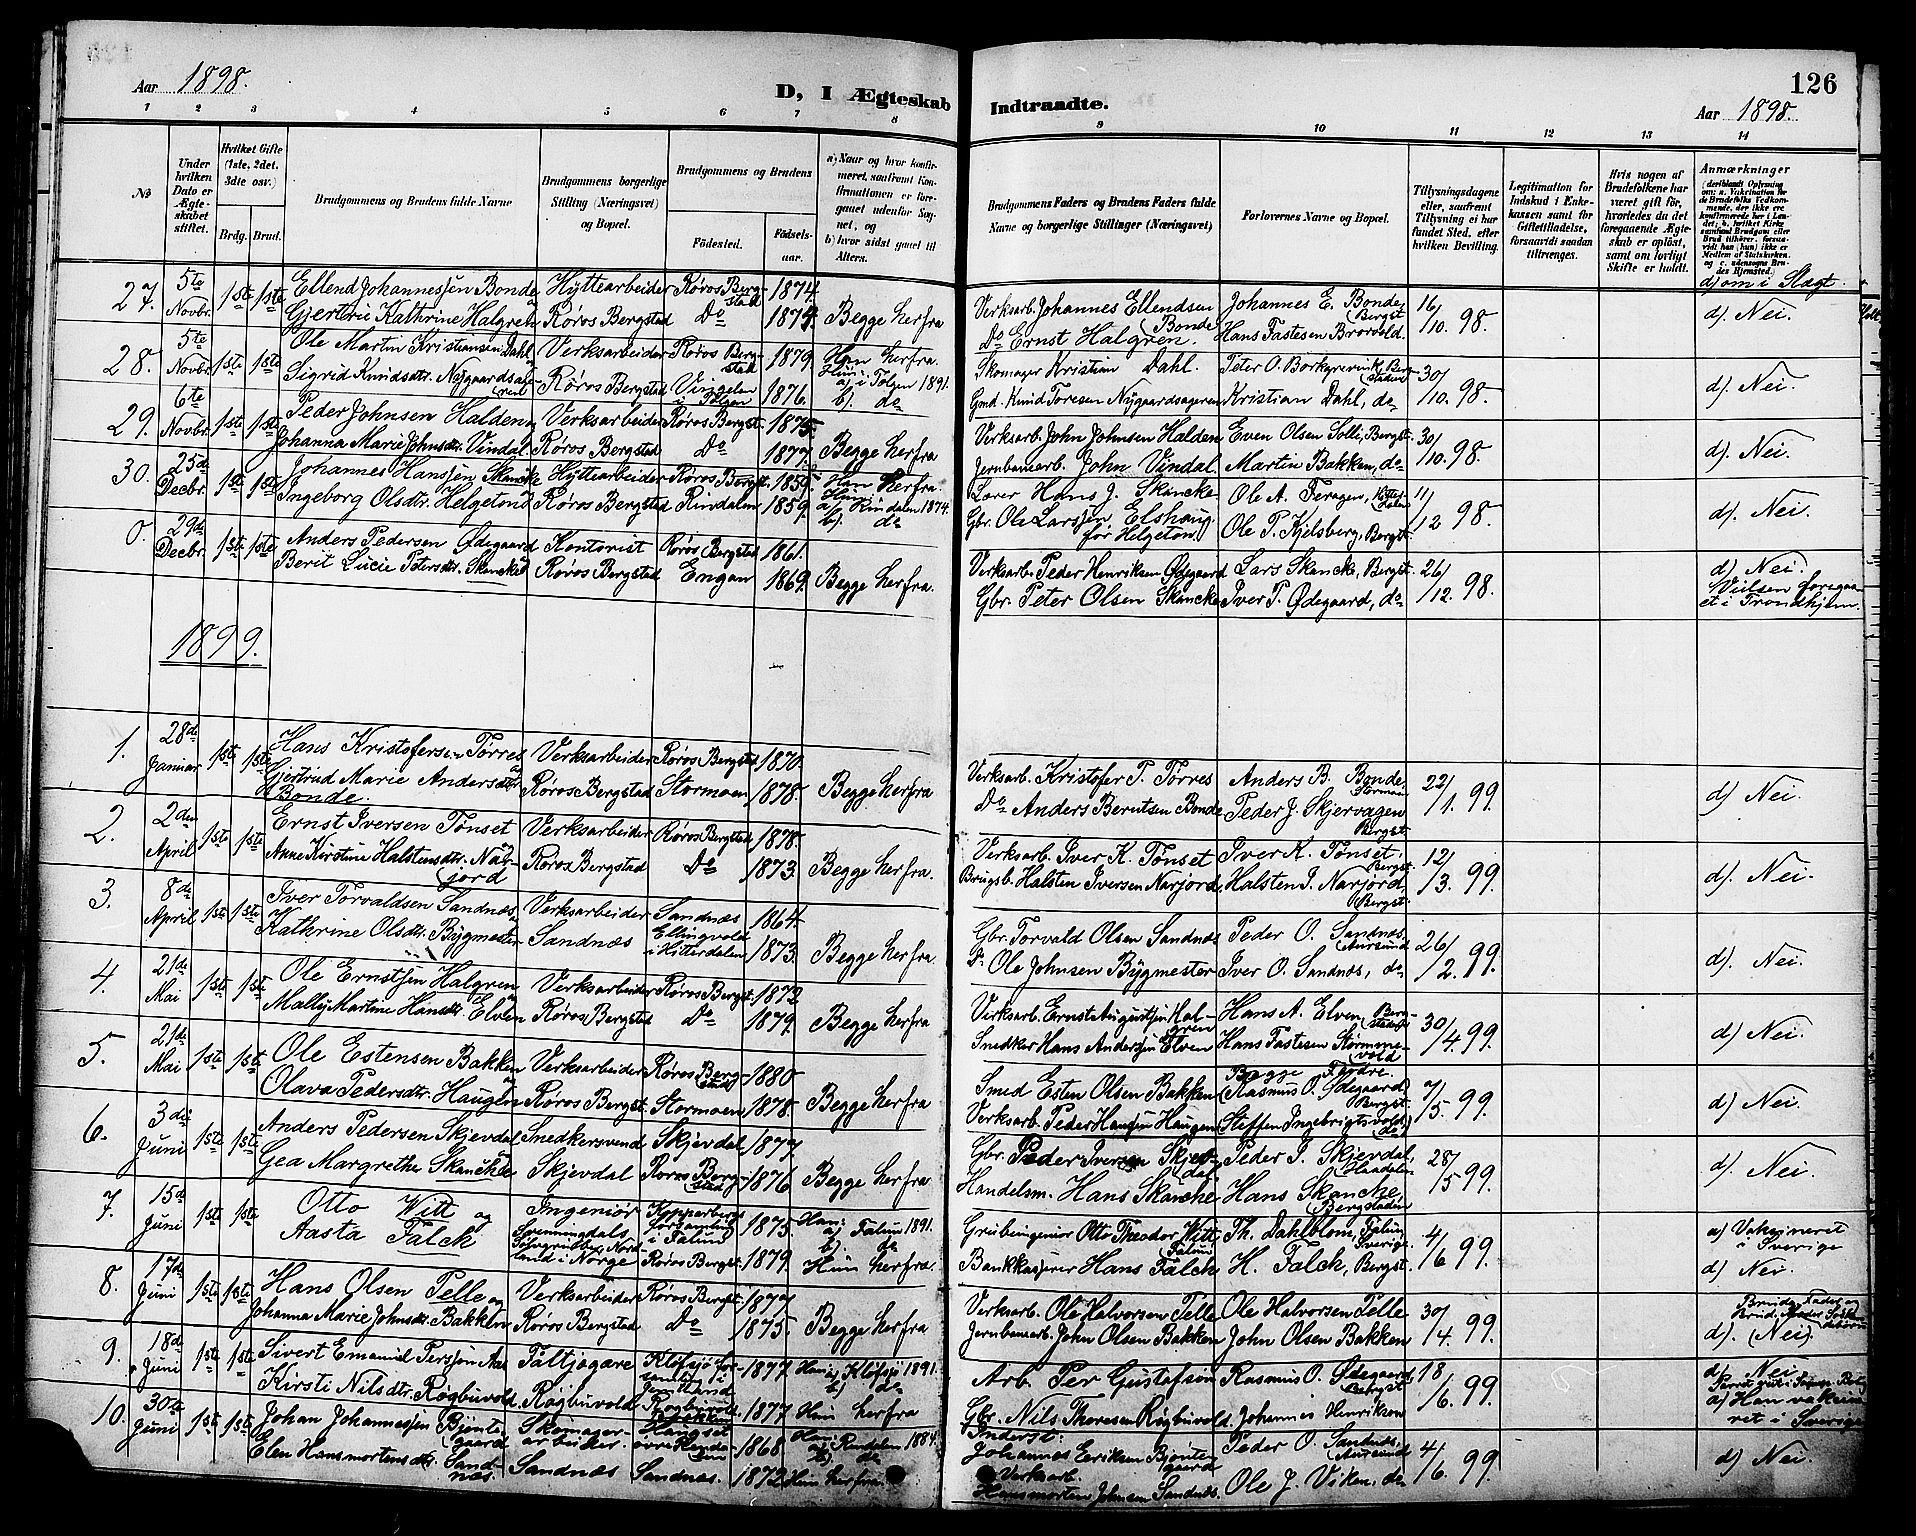 126
Aar 1898.
D, I Ægteskab Indtraadte.
Aar 1898.
1 2 3 4 5 6 7 8 9 10 11 12 13 14
No
Under hvilken Dato er Ægteskabet stiftet.
Hvilket Gifte (1ste, 2det, 3die osv.)
Brdg. Brud.
Brudgommens og Brudens fulde Navne
Brudgommens borgerlige Stilling (Næringsvei) og Bopæl.
Brudgommens og Brudens
Fødested. Fødselsaar.
a) Naar og hvor konfirmeret, saafremt Konfirmationen er foregaaet udenfor Sognet, og
b) hvor sidst gaaet til Alters.
Brudgommens Faders og Brudens Faders fulde Navne og borgerlige Stillinger (Næringsvei)
Forlovernes Navne og Bopæl.
Tillysningsdagene eller, saafremt Tillysning ei har fundet Sted, efter hvilken Bevilling.
Legitimation for Indskud i Enkekassen samt for Giftetilladelse, forsaavidt saadan tiltrænges.
Hvis nogen af Brudefolkene har været gift før, hvorledes da det foregaaende Ægteskab er opløst, samt om lovligt Skifte er holdt.
Anmærkninger
d) om i Slægt.
27. 5te Novbr. 1ste 1ste Ellend Johannessen Bonde og Hyttearbeider Røros Bergstad 1874. Verksarb. Johannes Ellendsen Bonde Johannes E. Bonde, Bergst. 16/10. 98. d). Nei.
Gjertrie Kathrine Halgren Røros Bergstad Do 1874. Begge herfra Do Ernst Halgren. Hans Fastesen Brorvold.
28. 5te Novbr. 1ste 1ste Ole Martin Kristiansen Dahl Verksarbeider Røros Bergstad 1879. Han herfra. Skomager Kristian Dahl. Peter O. Borkgrevink, Bergstaden 30/10. 98. d). Nei.
Sigrid Knudsdtr. Nygaardsageren Røros Bergstad Vingelen i Tolgen 1876. Hun: a) i Tolgen 1891. b). do Gmd. Knud Toresen Nygaardsageren Kristian Dahl, do
29. 6te Novbr. 1ste 1ste Peder Johnsen Halden og Verksarbeider Røros Bergst. 1875. Verksarb. John Johnsen Halden Even Olsen Solli, Bergst. 30/10. 98. d). Nei.
Johanna Marie Johnsdtr. Vindal Røros Bergstad Do 1877. Begge herfra Jernbanearb. John Vindal. Martin Bakken, do
30. 25de Decbr. 1ste 1ste Johannes Hanssen Skancke Hyttearbeider Røros Bergst. Han herfra. Hans J. Skancke Ole A. Feragen, 11/12 98. d). Nei.
Ingeborg Olsdtr. Helgeton Røros Bergstad Rindalen 1859. Hun: a) i Rindalen 1874. b) do Gbr. Ole Larssen Elshaug før Helgeton. Ole P. Kjelsberg, Bergst.
0. 29de Decbr. 1ste 1ste Anders Pedersen Ødegaard Kontorist Røros Bergstad 1861. Verksarb. Peder Henriksen Ødegaard Lars Skancke, Bergst. 26/12. 98. d) Nei.
Berit Lucie Petersdtr. Skancke Røros Bergstad Engan 1869. Begge herfra. Gbr. Peter Olsen Skancke Iver P. Ødegaard, do Vielsen foregaaet i Trondhjem.
1899.
1. 28de Januar 1ste 1ste Hans Kristofersen Tørres Verksarbeider Røros Bergstad 1870. Verksarb. Kristofer T. Tørres Anders B. Bonde, Stormoen 22/1. 99. d) Nei.
Gjertrud Marie Andersdtr. Bonde. Røros Bergstad Stormoen 1878. Begge herfra Do Anders Berntsen Bonde Peder J. Skjervagen Bergst.
2. 2den April 1ste 1ste Ernst Iversen Tønset Verksarbeider Røros Bergstad 1878. Verksarb. Iver K. Tønset Iver K. Tønset, Bergst. 12/3. 99. d). Nei.
Anne Kirstine Halstensdtr. Narjord Røros Bergstad Do 1873. Begge herfra. Brugsb. Halsten Iversen Narjord, Halsten I. Narjord, Bergst.
3. 8de April 1ste 1ste Iver Torvaldsen Sandnæs Verksarbeider Sandnæs 1864. Gbr. Torvald Olsen Sandnæs Peder O. Sandnæs, Aursund 26/2. 99. d). Nei.
Kathrine Olsdtr. Bygmester Sandnæs Ellingvold i Hitterdalen 1873. Begge herfra. Ole Johnsen Bygmester Iver O. Sandnæs, do
4. 21de Mai 1ste 1ste Ole Ernstsen Halgren Verksarbeider Røros Bergst. 1873 Verksarb. Ernst Augustsen Halgren Hans A. Elven, Bergstaden 30/4. 99. d) Nei.
Mally Martine Hansdtr. Elven Røros Bergstad Do 1879. Begge herfra Snedker Hans Anderssen Elven Hans Fastesen Stormmevold
5. 21de Mai 1ste 1ste Ole Estensen Bakken og Verksarbeider Røros Bergstad 1880 Smed Esten Olsen Bakken Begge Fædre. Rasmus O. Ødegaard, Bergst. 7/5. 99. d) Nei.
Olava Pedersdtr. Haugen Røros Bergst. Stormoen 1878. Begge herfra Verksarb. Peder Hanssen Haugen Steffen Ingebrigtsvold, do
6. 3die Juni 1ste 1ste Anders Pedersen Skjevdal Snedkersvend Skjevdal 1877 Gbr. Peder Iversen Skjevdal Peder I. Skjevdal, Glaadalen 28/5 99. d). Nei.
Gea Margrethe Skancke Skjevdal Røros Bergstad 1876 Begge herfra Handelsm. Hans Skancke Hans Skancke, Bergstaden
7. 15de Juni 1ste 1ste Otto Witt og Ingeniør Kopparbergs församling i Falun 1875. Han: a) Falun 1891. b). do Otto Theodor Witt Falun Th. Dahlblom, Falun, Sverige. 4/6 99. a) Vaksineret i Sverige
Aasta Falck Nordland i Norge Røros Bergst. 1879. Hun herfra. Bankkasserer Hans Falck H. Falck, Bergst. d) Nei.
8. 17de Juni 1ste 1ste Hans Olsen Pelle og Verksarbeider Røros Bergst. 1877 Verksarb. Ole Halvorsen Pelle Ole Halvorsen Pelle 30/4. 99. d). (Nei)
Johanna Marie Johnsdtr. Bakken Røros Bergstad Do 1875. Begge herfra Jernbanearb. John Olsen Bakken John Olsen Bakken
9. 18de Juni 1ste 1ste Sivert Emanuel Perssøn Fältjägare Klöfsjö församling i Jemtland 1877 Han: a) Klöfsjö 1891. b) do Arb. Per Gustafson Rasmus O. Ødegaard Bergst. 18/6. 99. d) Nei
Kirsti Nilsdtr. Røgbuvold Røgbuvold Røgbuvold 1877 Hun herfra Gbr. Nils Thoresen Røgbuvold. Johannes Henrikson
10. 30te Juni 1ste 1ste Johan Johannessen Bjøntegaard Skomagerarbeider. Øvre Rendalen 1868 Han: a) Rendalen 1884. b) do Inderst: Johannes Eeriksen Bjøntegaard Peder O. Sandnæs, Aursund 4/6. 99. d) Nei.
Elen Hansmortensdtr. Sandnæs. Sandnæs Sandnæs. 1872 Hun herfra. Verksarb. Hansmorten Johnsen Sandnæs. Ole J. Viken, do